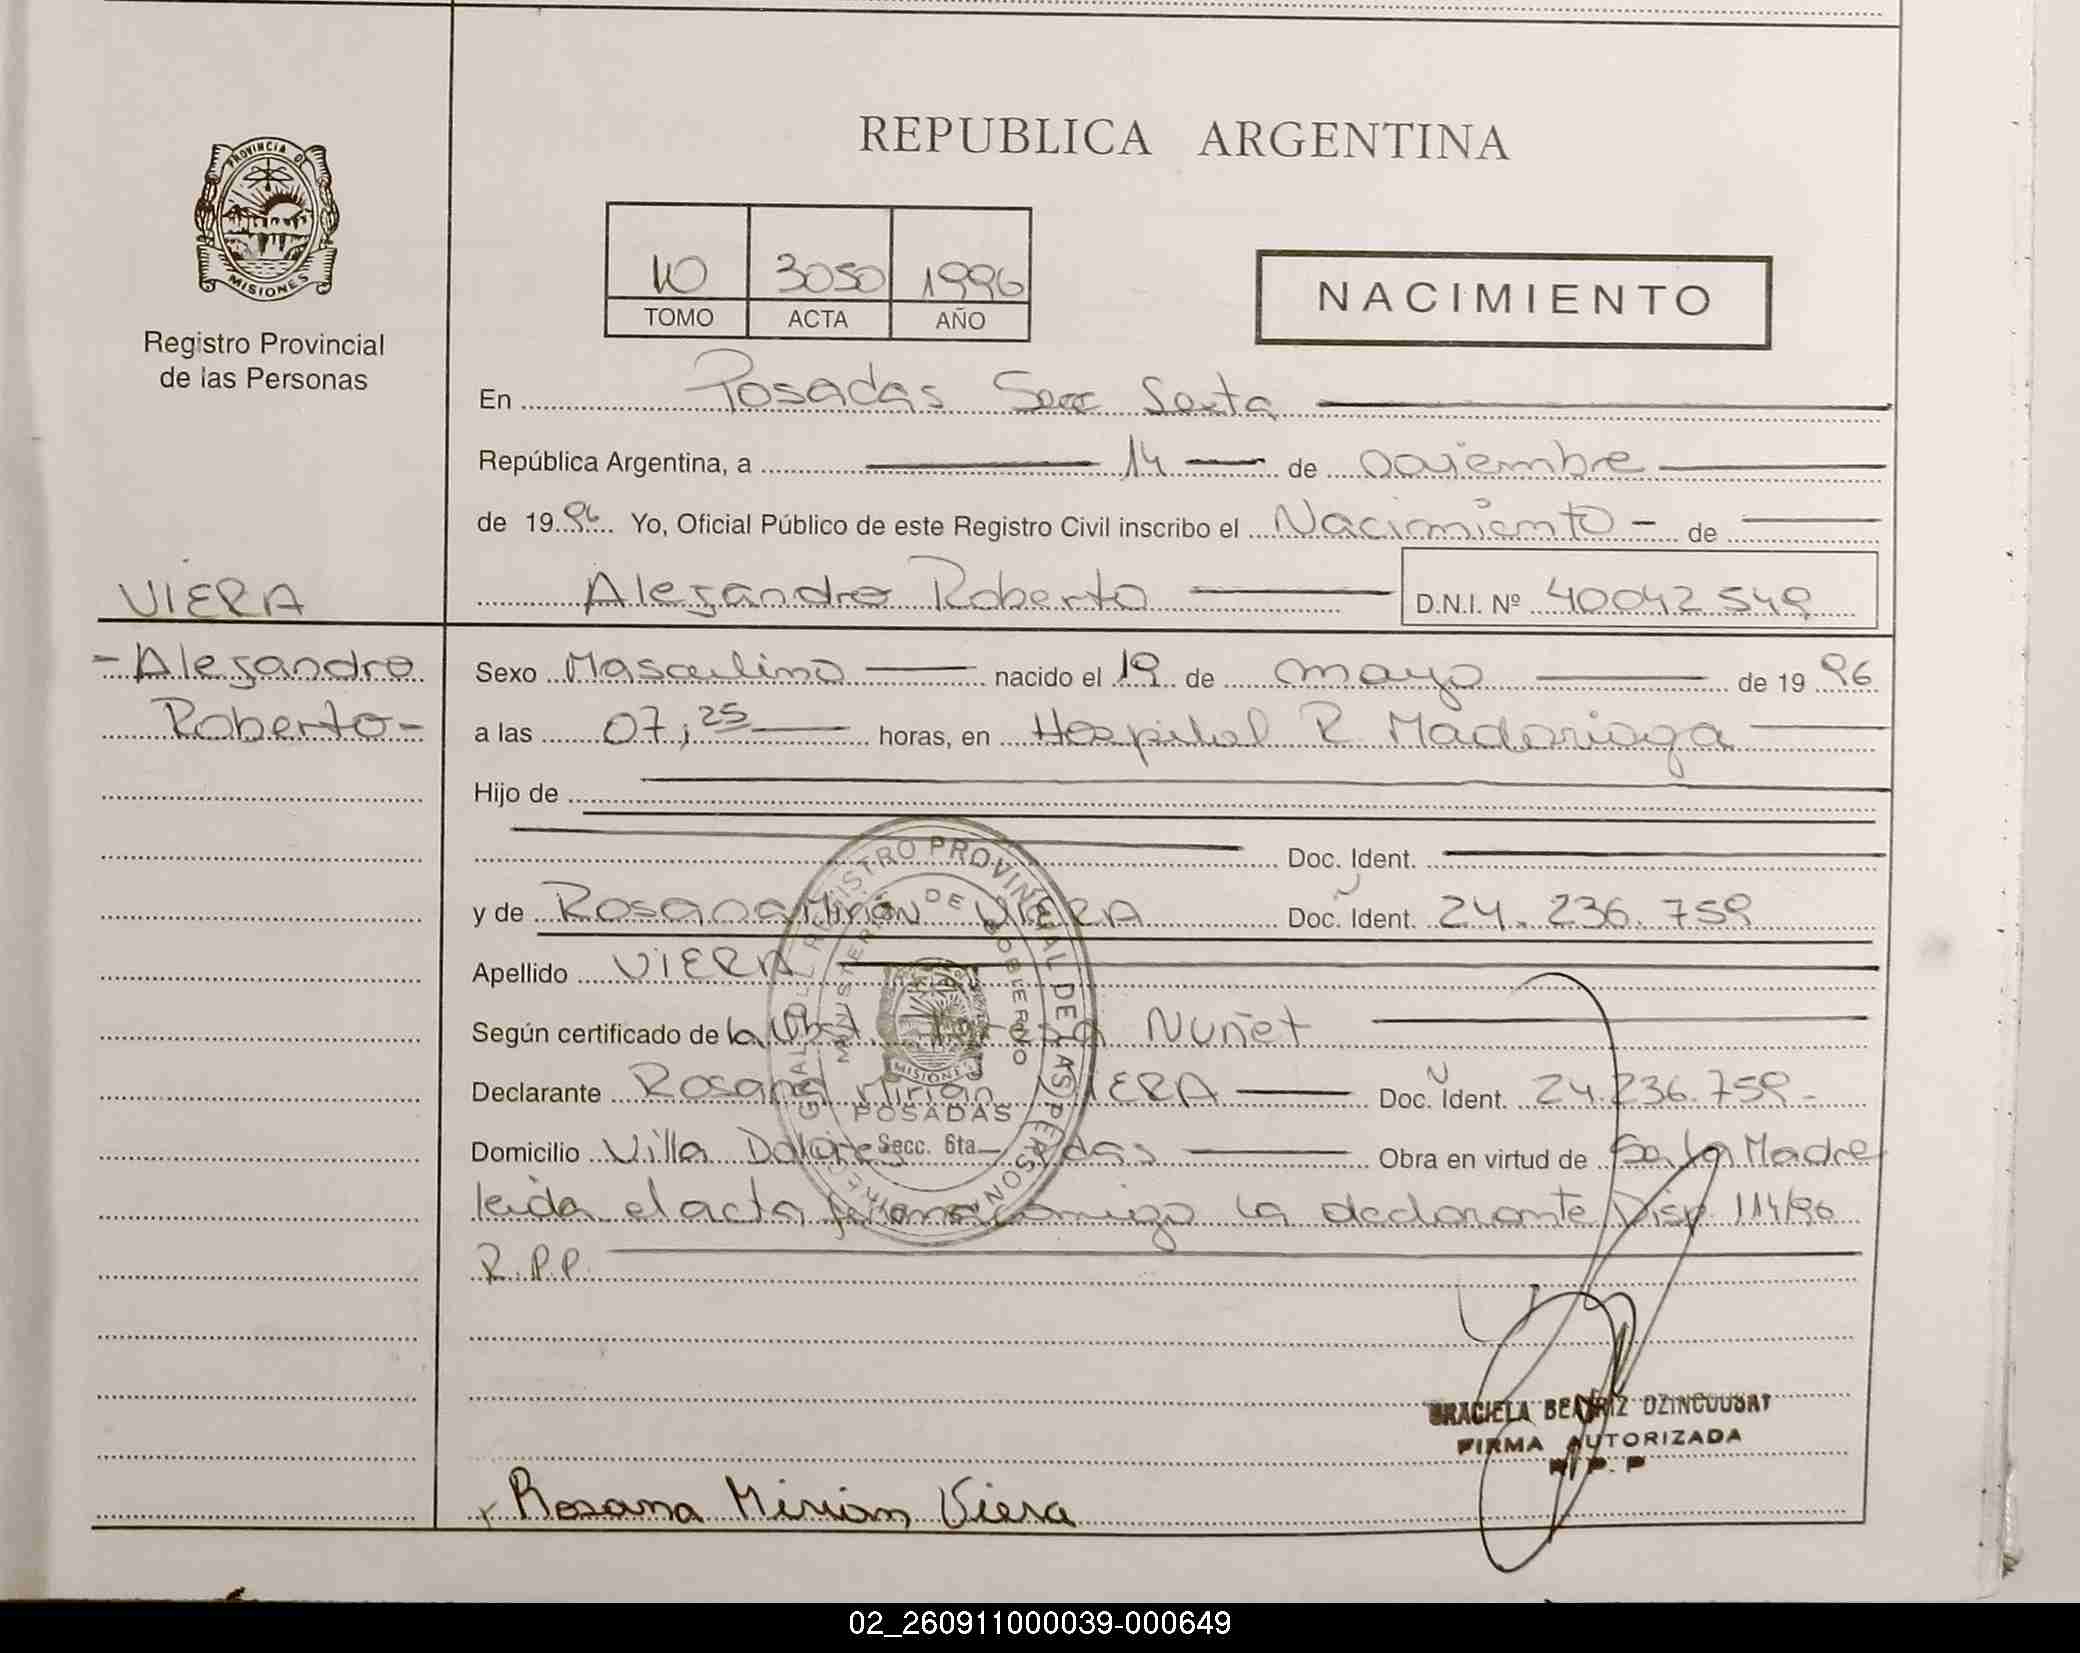 REPUBLICA ARGENTINA
PROVINCIA DE
MISIONES
Registro Provincial
de las Personas
10 3050 1996
TOMO ACTA AÑO
NACIMIENTO
En Posadas Secc Sexta
República Argentina, a 14 de noviembre
de 1996 Yo, Oficial Público de este Registro Civil inscribo el Nacimiento - de
VIERA
Alejandro Roberto D.N.I. Nº 40042549
- Alejandro
Roberto -
Sexo Masculino nacido el 19 de mayo de 1996
a las 07,25 horas, en Hospital R. Madariaga
Hijo de
Doc. Ident.
y de Rosana Mirian VIERA Doc. Ident. 24.236.759
Apellido VIERA
Según certificado de la Obst Nuñet
Declarante Rosana Mirian VIERA Doc. Ident. 24.236.759-
Domicilio Villa Dolores Obra en virtud de Se la Madre
leida el acta firma comigo la declarante Disp. 114/96
R.P.P.
REGISTRO PROVINCIAL DE LAS PERSONAS
MINISTERIO DE GOBIERNO
MISIONES
POSADAS
Secc. 6ta
GRACIELA BEATRIZ DZINCOUSAT
FIRMA AUTORIZADA
R. P. P
x Rosana Mirian Viera
02_260911000039-000649